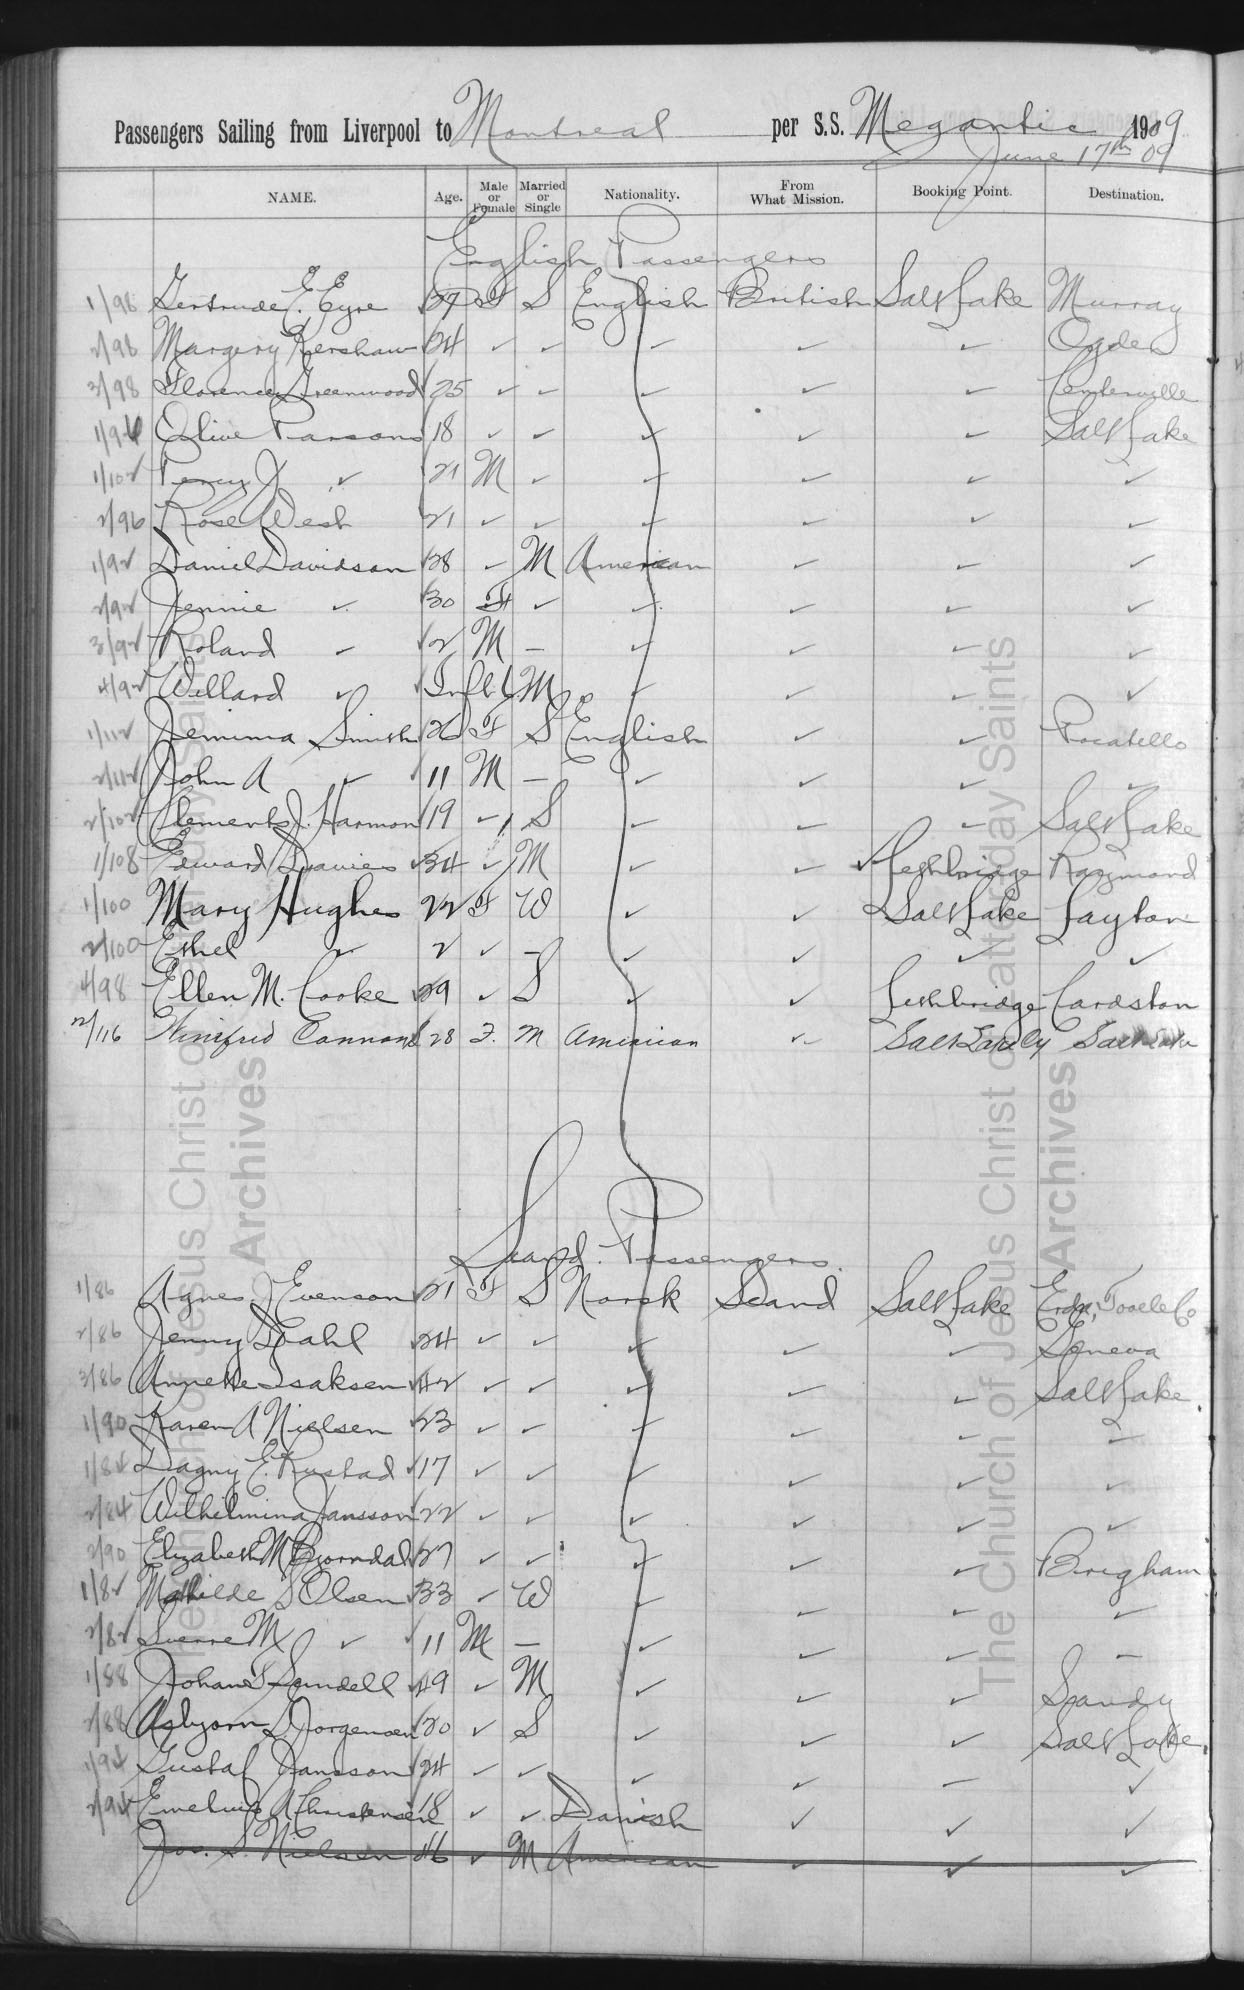 Passengers Sailing from Liverpool to Montreal per S.S. Megantic 1909
June 17th 09
NAME. Age. Male or Female Married or Single Nationality. From What Mission. Booking Point. Destination.
English Passengers
1/98 Gertrude E. Eyre 27 F S English British Salt Lake Murray
2/98 Margery Kershaw 24 ✓ ✓ ✓ ✓ ✓ Ogden
3/98 Florence Greenwood 25 ✓ ✓ ✓ ✓ ✓ Centerville
1/96 Olive Parsons 18 ✓ ✓ ✓ ✓ ✓ Salt Lake
1/102 Percy J. ✓ 21 M ✓ ✓ ✓ ✓ ✓
2/96 Rose West 21 ✓ ✓ ✓ ✓ ✓ ✓
1/92 Daniel Davidson 28 ✓ M American ✓ ✓ ✓
2/92 Jennie ✓ 30 F ✓ ✓ ✓ ✓ ✓
3/92 Roland ✓ 2 M — ✓ ✓ ✓ ✓
4/92 Willard ✓ Inft M ✓ ✓ ✓ ✓
1/112 Jemima Smith 26 F S English ✓ ✓ Pocatello
2/112 John A ✓ 11 M — ✓ ✓ ✓ ✓
2/102 Clements J. Harmon 19 ✓ S ✓ ✓ ✓ Salt Lake
1/108 Edward Davies 34 ✓ M ✓ ✓ Lethbridge Raymond
1/100 Mary Hughes 22 F W ✓ ✓ Salt Lake Layton
2/100 Ethel ✓ 2 ✓ — ✓ ✓ ✓ ✓
4/98 Ellen M. Cooke 29 ✓ S ✓ ✓ Lethbridge Cardston
12/116 Winifred Cannon 28 F. M American ✓ Salt Lake Cy Salt Lake
Scand. Passengers.
1/86 Agnes J Evenson 21 F S Norsk Scand Salt Lake Erda, Tooele Co
2/86 Jenny Dahl 24 ✓ ✓ ✓ ✓ ✓ Geneva
3/86 Annette Isaksen 42 ✓ ✓ ✓ ✓ ✓ Salt Lake
1/90 Karen A Nielsen 23 ✓ ✓ ✓ ✓ ✓ —
1/84 Dagny E. Rustad 17 ✓ ✓ ✓ ✓ ✓ ✓
2/84 Wilhelmina Jansson 22 ✓ ✓ ✓ ✓ ✓ ✓
2/90 Elizabeth M Bjorndal 27 ✓ ✓ ✓ ✓ ✓ Brigham
1/82 Mathilde S Olsen 33 ✓ W ✓ ✓ ✓ ✓
2/82 Sverre M ✓ 11 M — ✓ ✓ ✓ —
1/88 Johan F Sundell 49 ✓ M ✓ ✓ ✓ Sandy
2/88 Asbjorn D Jorgensen 20 ✓ S ✓ ✓ ✓ Salt Lake
1/94 Gustaf Jansson 24 ✓ ✓ ✓ ✓ — ✓
2/94 A Christensen 18 ✓ ✓ Danish ✓ ✓ ✓
Jos. S. Nielsen ✓ M American ✓ ✓ ✓
The Church of Jesus Christ of Latter-day Saints
Archives
The Church of Jesus Christ of Latter-day Saints
Archives